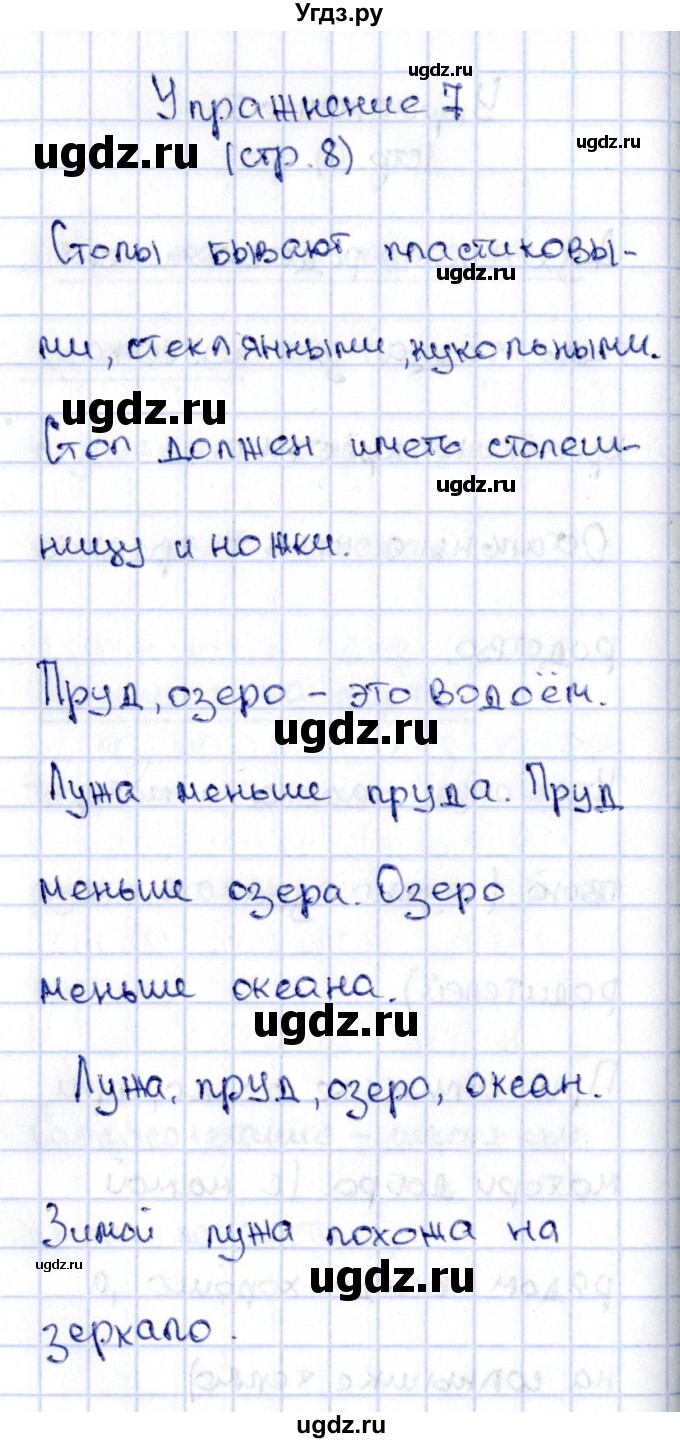 Угдз.ру
ugdz.ru
Упражнение 7
ugdz.ru
ugdz.ru
(стр. 8)
Столы бывают пластиковы-
ugdz.ru
ми, стеклянными, кукольными.
ugdz.ru
Стол должен иметь столеш-
ugdz.ru
ницу и ножки.
Пруд, озеро - это водоём.
ugdz.ru
Лужа меньше пруда. Пруд
меньше озера. Озеро
меньше океана.
ugdz.ru
Лужа, пруд, озеро, океан.
Зимой лужа похожа на
ugdz.ru
ugdz.ru
зеркало.
ugdz.ru